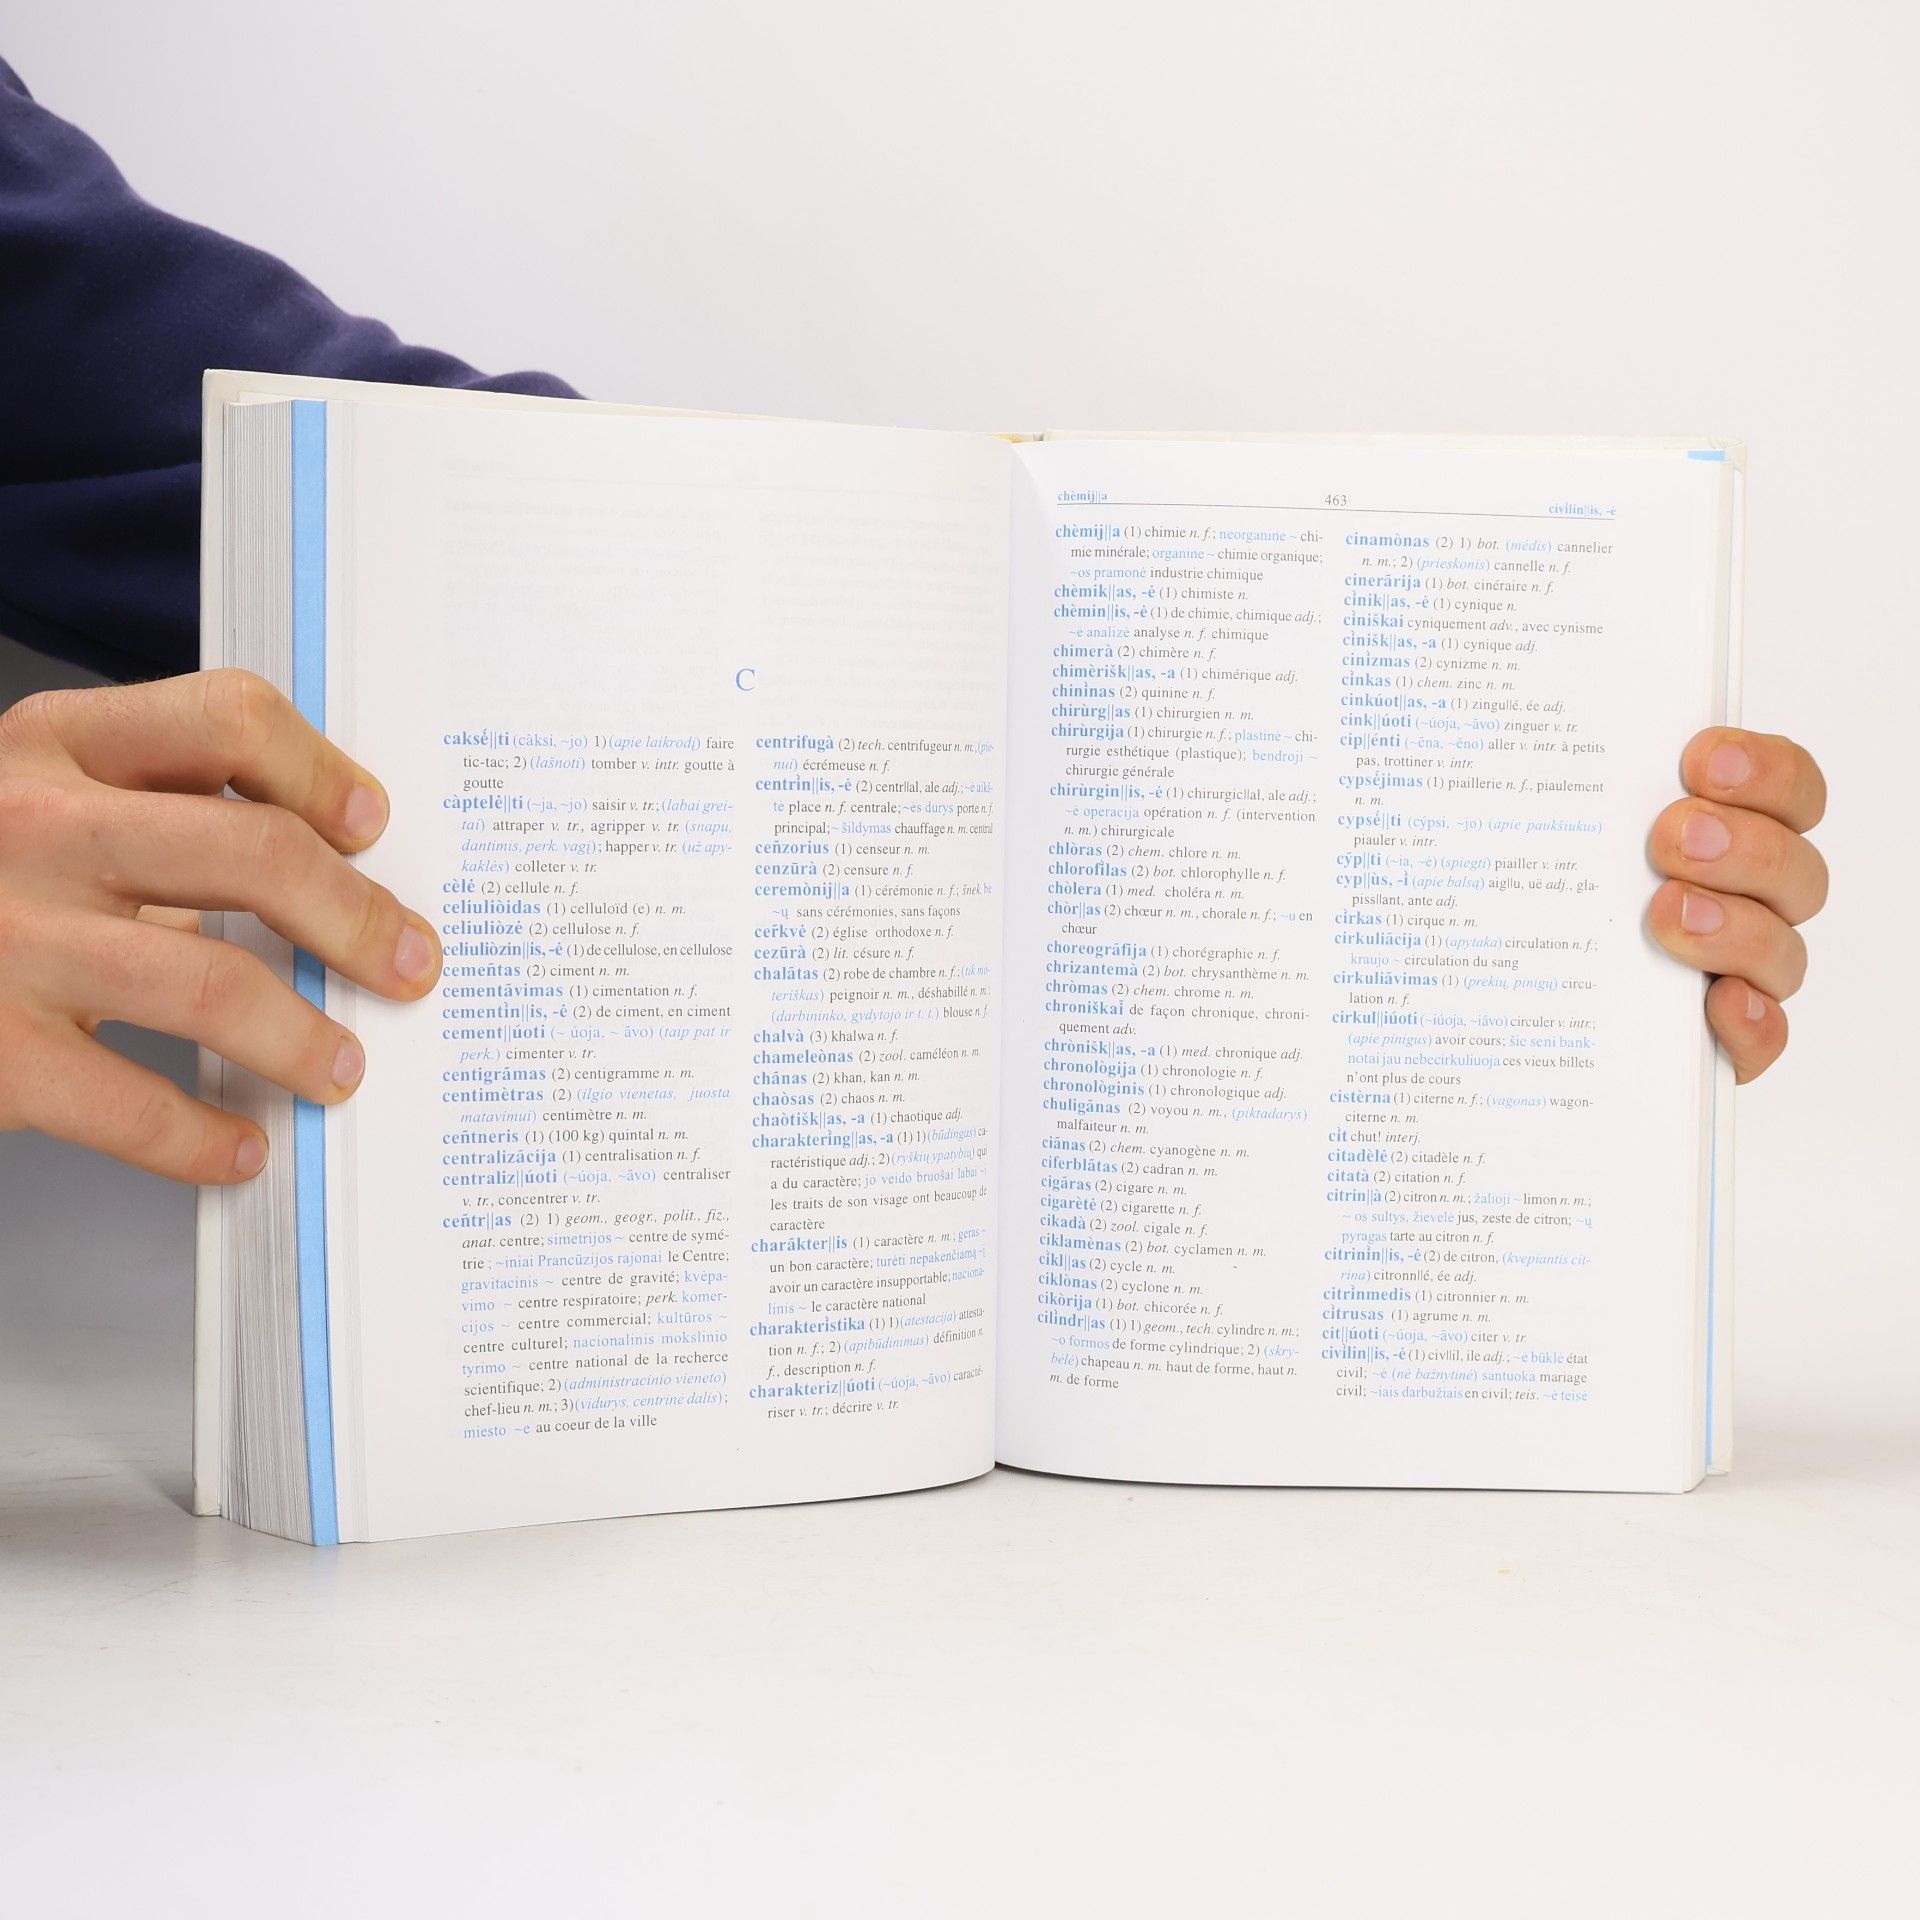 C
caksė́||ti (càksi, ~jo) 1) (apie laikrodį) faire
tic-tac; 2) (lašnoti) tomber v. intr. goutte à
goutte
càptelė||ti (~ja, ~jo) saisir v. tr.; (labai grei-
tai) attraper v. tr., agripper v. tr. (snapu,
dantimis, perk. vagį); happer v. tr. (už apy-
kaklės) colleter v. tr.
cèlė (2) cellule n. f.
celiuliòidas (1) celluloïd (e) n. m.
celiuliòzė (2) cellulose n. f.
celiuliòzin||is, -ė (1) de cellulose, en cellulose
cemeñtas (2) ciment n. m.
cementãvimas (1) cimentation n. f.
cementìn||is, -ė (2) de ciment, en ciment
cement||úoti (~ úoja, ~ ãvo) (taip pat ir
perk.) cimenter v. tr.
centigrãmas (2) centigramme n. m.
centimètras (2) (ilgio vienetas, juosta
matavimui) centimètre n. m.
ceñtneris (1) (100 kg) quintal n. m.
centralizãcija (1) centralisation n. f.
centraliz||úoti (~úoja, ~ãvo) centraliser
v. tr., concentrer v. tr.
ceñtr||as (2) 1) geom., geogr., polit., fiz.,
anat. centre; simetrijos ~ centre de symé-
trie ; ~iniai Prancūzijos rajonai le Centre;
gravitacinis ~ centre de gravité; kvėpa-
vimo ~ centre respiratoire; perk. komer-
cijos ~ centre commercial; kultūros ~
centre culturel; nacionalinis mokslinio
tyrimo ~ centre national de la recherce
scientifique; 2) (administracinio vieneto)
chef-lieu n. m.; 3) (vidurys, centrinė dalis);
miesto ~e au coeur de la ville
centrifugà (2) tech. centrifugeur n. m., (pie-
nui) écrémeuse n. f.
centrìn||is, -ė (2) centr||al, ale adj.; ~ė aikš-
tė place n. f. centrale; ~ės durys porte n. f.
principal; ~ šildymas chauffage n. m. central
ceñzorius (1) censeur n. m.
cenzūrà (2) censure n. f.
ceremònij||a (1) cérémonie n. f.; šnek. be
~ų sans cérémonies, sans façons
cer̃kvė (2) église orthodoxe n. f.
cezūrà (2) lit. césure n. f.
chalãtas (2) robe de chambre n. f.; (tik mo-
teriškas) peignoir n. m., déshabillé n. m.;
(darbininko, gydytojo ir t. t.) blouse n. f.
chalvà (3) khalwa n. f.
chameleònas (2) zool. caméléon n. m.
chãnas (2) khan, kan n. m.
chaòsas (2) chaos n. m.
chaòtišk||as, -a (1) chaotique adj.
charakterìng||as, -a (1) 1) (būdingas) ca-
ractéristique adj.; 2) (ryškių ypatybių) qui
a du caractère; jo veido bruošai labai ~i
les traits de son visage ont beaucoup de
caractère
charãkter||is (1) caractère n. m.; geras ~
un bon caractère; turėti nepakenčiamą ~į
avoir un caractère insupportable; naciona-
linis ~ le caractère national
charakterìstika (1) 1) (atestacija) attesta-
tion n. f.; 2) (apibūdinimas) définition n.
f., description n. f.
charakteriz||úoti (~úoja, ~ãvo) caracté-
riser v. tr.; décrire v. tr.
chèmij||a 463 civìlin||is, -ė
chèmij||a (1) chimie n. f.; neorganinė ~ chi-
mie minérale; organinė ~ chimie organique;
~os pramonė industrie chimique
chèmik||as, -ė (1) chimiste n.
chèmin||is, -ė (1) de chimie, chimique adj.;
~ė analizė analyse n. f. chimique
chimerà (2) chimère n. f.
chimèrišk||as, -a (1) chimérique adj.
chinìnas (2) quinine n. f.
chirùrg||as (1) chirurgien n. m.
chirùrgija (1) chirurgie n. f.; plastinė ~ chi-
rurgie esthétique (plastique); bendroji ~
chirurgie générale
chirùrgin||is, -ė (1) chirurgic||al, ale adj.;
~ė operacija opération n. f. (intervention
n. m.) chirurgicale
chlòras (2) chem. chlore n. m.
chlorofìlas (2) bot. chlorophylle n. f.
chòlera (1) med. choléra n. m.
chòr||as (2) chœur n. m., chorale n. f.; ~u en
chœur
choreogrãfija (1) chorégraphie n. f.
chrizantemà (2) bot. chrysanthème n. m.
chròmas (2) chem. chrome n. m.
chroniškaĩ de façon chronique, chroni-
quement adv.
chrònišk||as, -a (1) med. chronique adj.
chronològija (1) chronologie n. f.
chronològinis (1) chronologique adj.
chuligãnas (2) voyou n. m., (piktadarys)
malfaiteur n. m.
ciãnas (2) chem. cyanogène n. m.
ciferblãtas (2) cadran n. m.
cigãras (2) cigare n. m.
cigarètė (2) cigarette n. f.
cikadà (2) zool. cigale n. f.
ciklamènas (2) bot. cyclamen n. m.
cìkl||as (2) cycle n. m.
ciklònas (2) cyclone n. m.
cikòrija (1) bot. chicorée n. f.
cilìndr||as (1) 1) geom., tech. cylindre n. m.;
~o formos de forme cylindrique; 2) (skry-
bėlė) chapeau n. m. haut de forme, haut n.
m. de forme
cinamònas (2) 1) bot. (medis) cannelier
n. m.; 2) (prieskonis) cannelle n. f.
cinerãrija (1) bot. cinéraire n. f.
cìnik||as, -ė (1) cynique n.
cìniškai cyniquement adv., avec cynisme
cìnišk||as, -a (1) cynique adj.
cinìzmas (2) cynizme n. m.
cìnkas (1) chem. zinc n. m.
cinkúot||as, -a (1) zingu||é, ée adj.
cink||úoti (~úoja, ~ãvo) zinguer v. tr.
cip||énti (~ẽna, ~ẽno) aller v. intr. à petits
pas, trottiner v. intr.
cypsė́jimas (1) piaillerie n. f., piaulement
n. m.
cypsė́||ti (cýpsi, ~jo) (apie paukšiukus)
piauler v. intr.
cỹp||ti (~ia, ~ė) (spiegti) piailler v. intr.
cyp||ùs, -ì (apie balsą) aig||u, uë adj., gla-
piss||ant, ante adj.
cìrkas (1) cirque n. m.
cirkuliãcija (1) (apytaka) circulation n. f.;
kraujo ~ circulation du sang
cirkuliãvimas (1) (prekių, pinigų) circu-
lation n. f.
cirkul||iúoti (~iúoja, ~iãvo) circuler v. intr.;
(apie pinigus) avoir cours; šie seni bank-
notai jau nebecirkuliuoja ces vieux billets
n’ont plus de cours
cistèrna (1) citerne n. f.; (vagonas) wagon-
citerne n. m.
cìt chut! interj.
citadèlė (2) citadèle n. f.
citatà (2) citation n. f.
citrin||à (2) citron n. m.; žalioji ~ limon n. m.;
~ os sultys, žievelė jus, zeste de citron; ~ų
pyragas tarte au citron n. f.
citrinìn||is, -ė (2) de citron, (kvepiantis cit-
rina) citronn||é, ée adj.
citrìnmedis (1) citronnier n. m.
cìtrusas (1) agrume n. m.
cit||úoti (~úoja, ~ãvo) citer v. tr.
civìlin||is, -ė (1) civ||il, ile adj.; ~ė būklė état
civil; ~ė (nė bažnytinė) santuoka mariage
civil; ~iais darbužiais en civil; teis. ~ė teisė